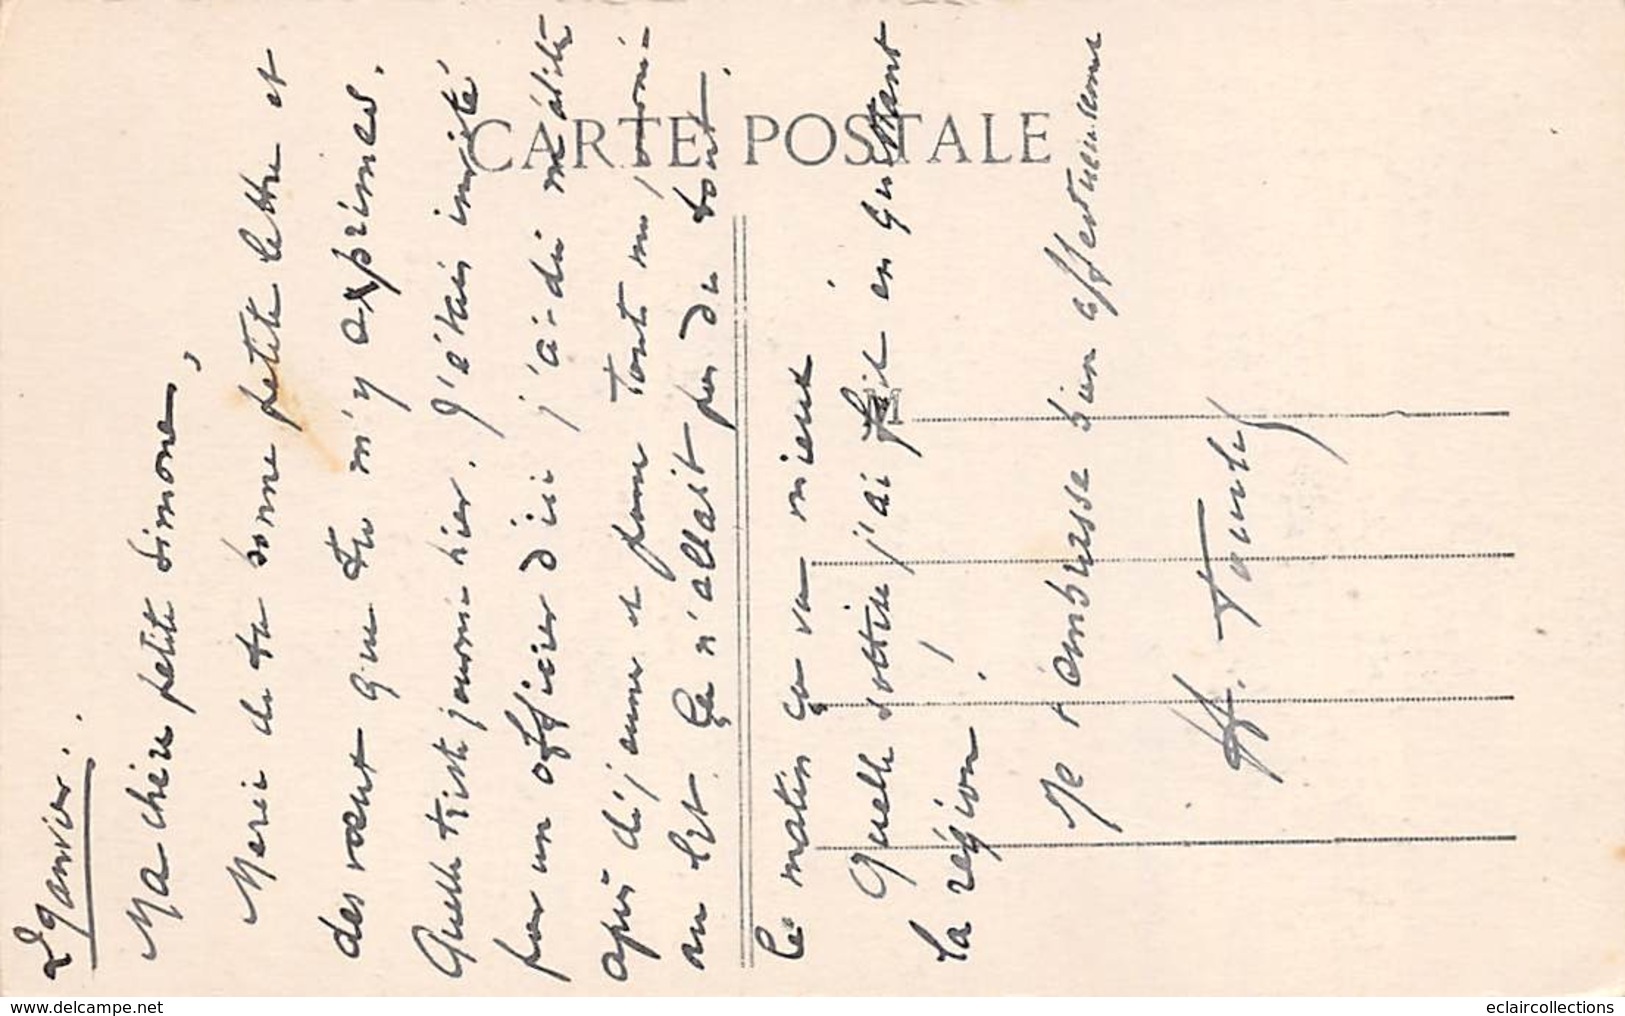 2 Janvier.
Ma chère petite Simone,
Merci de ta bonne petite lettre et
des vœux que tu m'y exprimes.
Quelle triste journée hier. J'étais invité
par un officier d'ici j'ai dû m'aliter
après déjeuner et
au lit. Ça n'allait pas du tout.
Ce matin ça va mieux
Quelle sottise j'ai fait en quittant
la région !
Je t'embrasse bien affectueusement
CARTE POSTALE
M
www.delcampe.net
eclaircollections